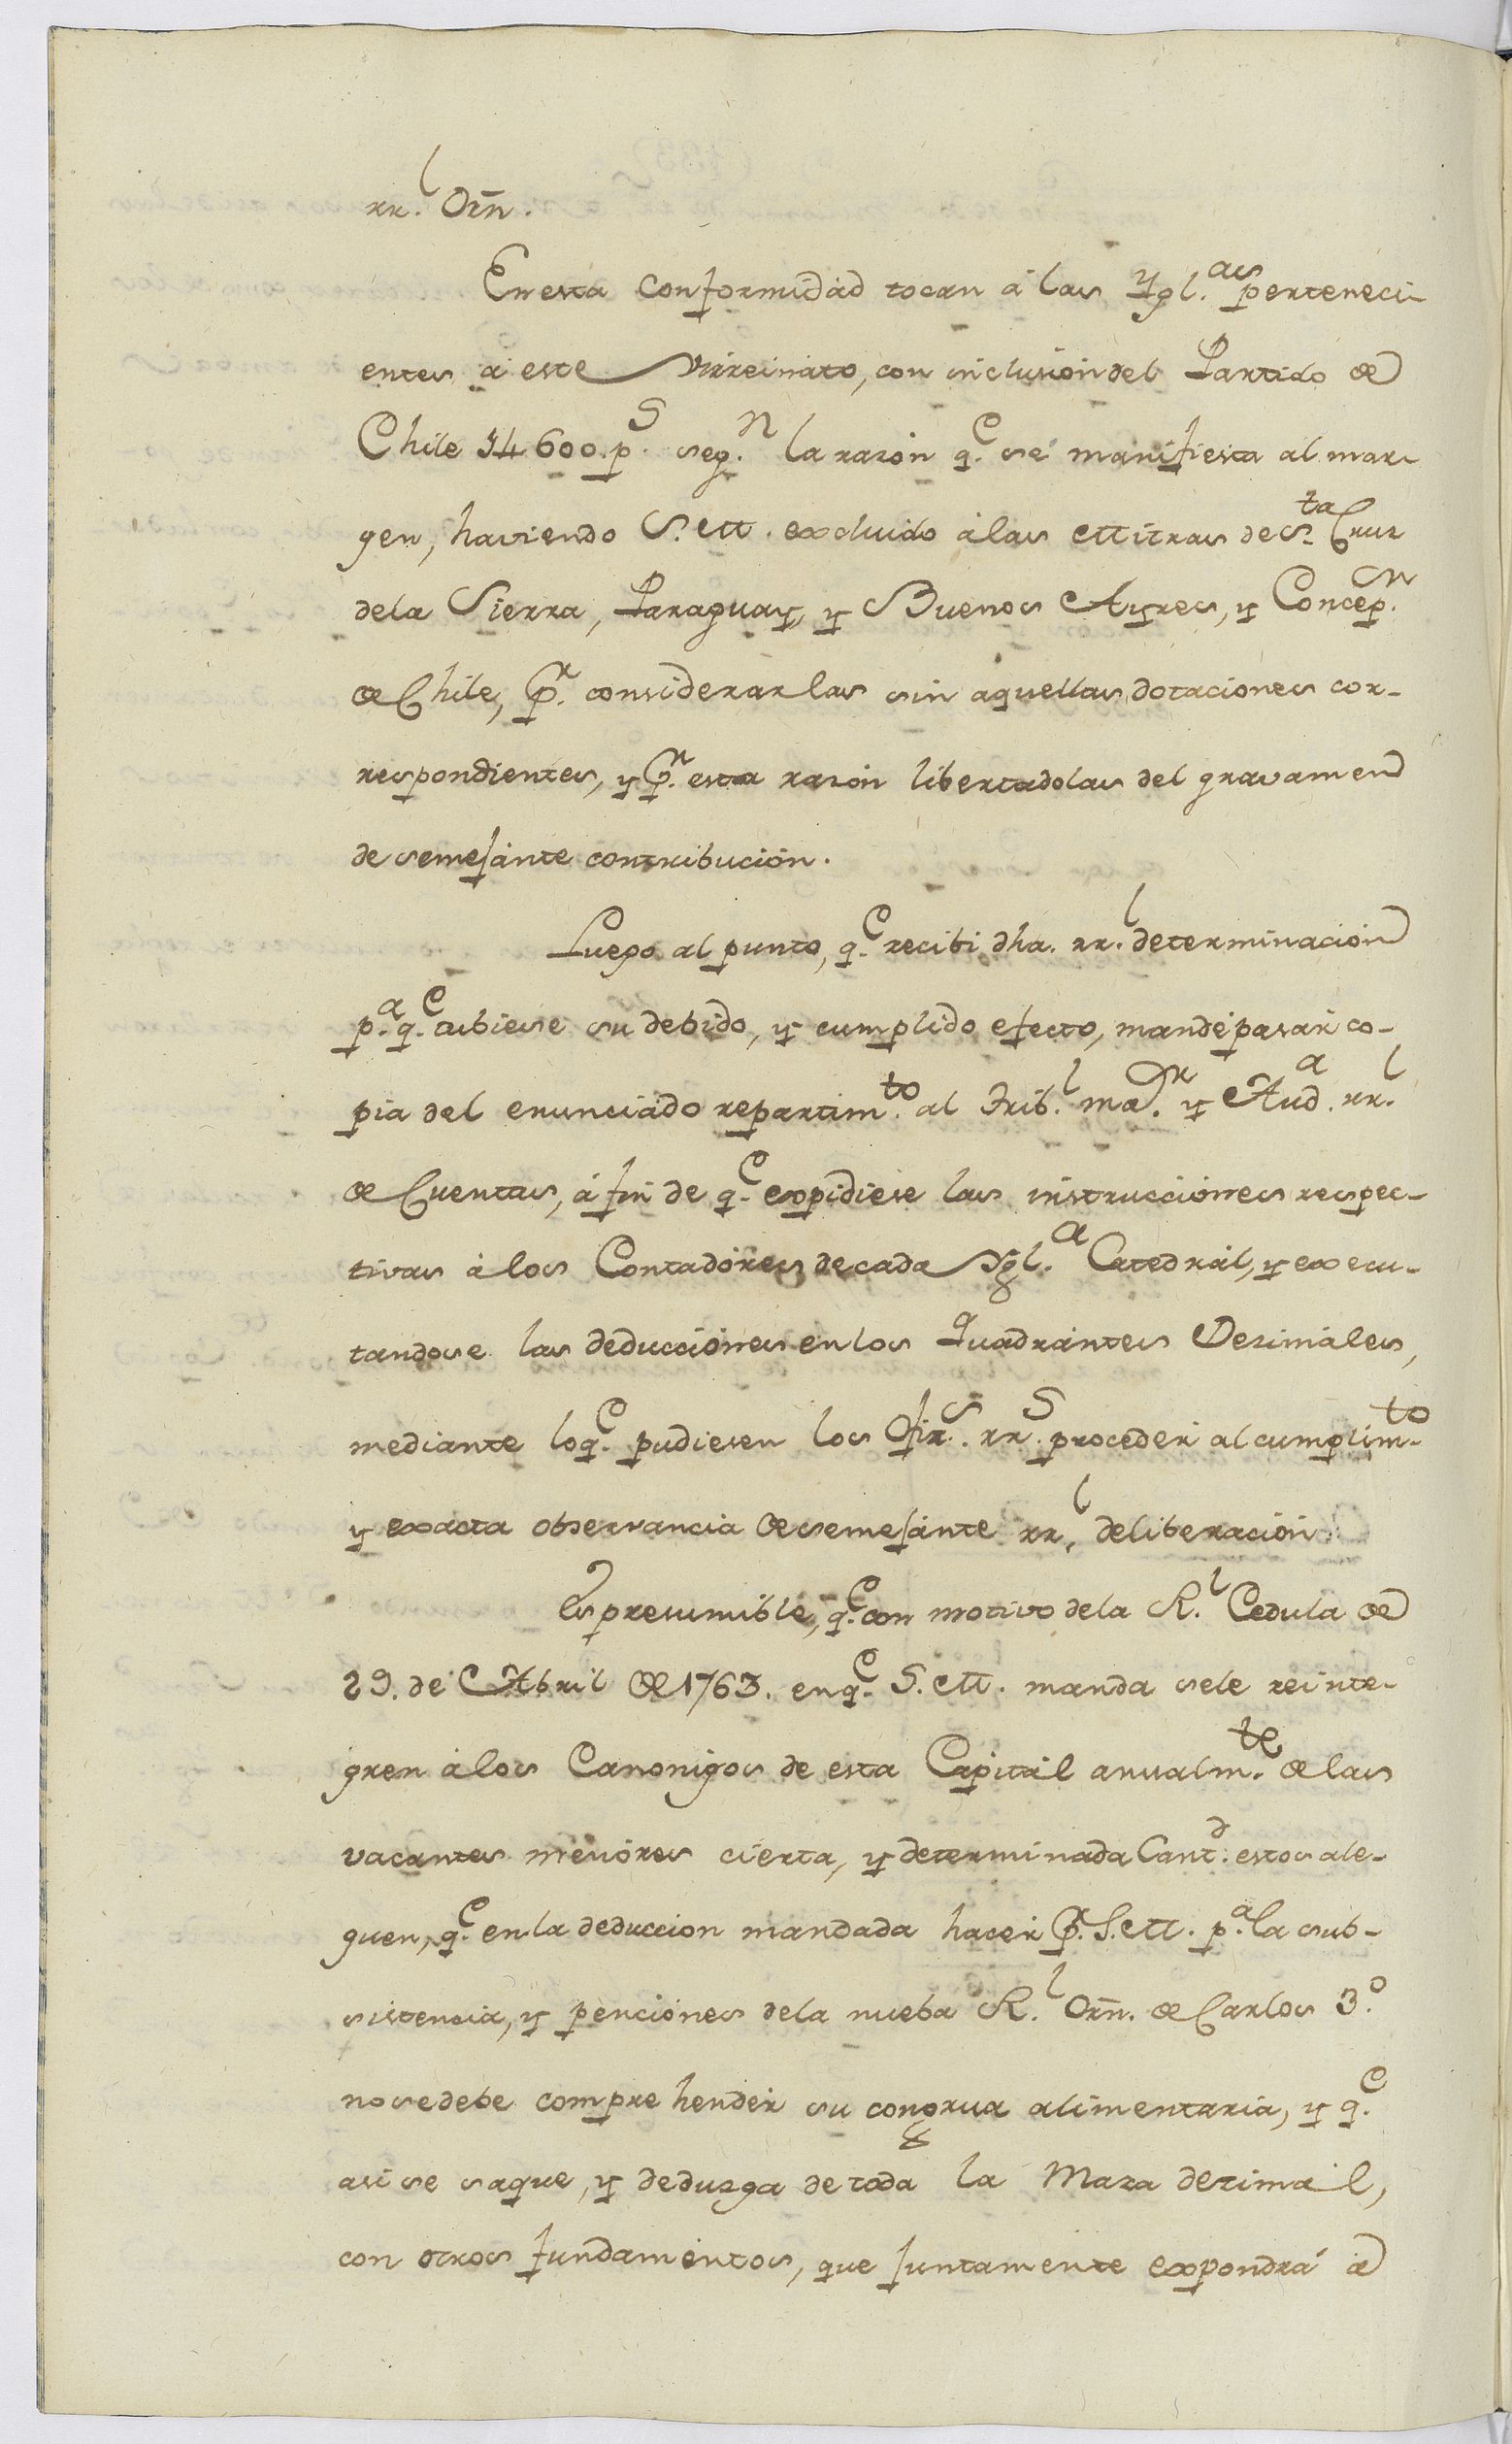 rr.l Orn̄.
En esta conformidad tocan á las Ygl.as perteneci-
entes a este Virreinato, con inclusion del Partido de
Chile 14600. p.s seg.n la razon q.e se manifiesta al mar-
gen, haviendo S. M. excluido á las Mitras de S.ta Cruz
de la Sierra, Paraguay, y Buenos Ayres, y Concep.on
de Chile, p.r considerarlas sin aquellas dotaciones cor-
respondientes, y p.r esta razon libertadolas del gravamen
de semejante contribucion.
Luego al punto, q.e recibi dha. rr.l determinacion
p.a q.e tubiese su debido, y cumplido efecto, mandé pasar co-
pia del enunciado repartim.to al Trib.l ma.or y Aud.a rr.l
de Cuentas, á fin de q.e expidiese las instrucciones respec-
tivas á los Contadores de cada Ygl.a Catedral, y execu-
tandose las deducciones en los Quadrantes Dezimales,
mediante lo q.e pudiesen los Ofiz.s rr.s proceder al cumplim.to
y exacta observancia de semejante rr.l deliberacion.
Es presumible, q.e con motivo de la R.l Cedula de
29. de Abril de 1763. en q.e S. M. manda se le reinte-
gren á los Canonigos de esta Capital anualm.te de las
vacantes menores cierta, y determinada Cant.d estos ale-
guen, q.e en la deduccion mandada hacer p.r S. M. p.a la sub-
sistencia, y penciones de la nueba R.l Orn̄. de Carlos 3.o
no se debe comprehender su congrua alimentaria, y q.e
asi se saque, y deduzga de toda la Maza dezimal,
con otros fundamentos, que juntamente expondrá á